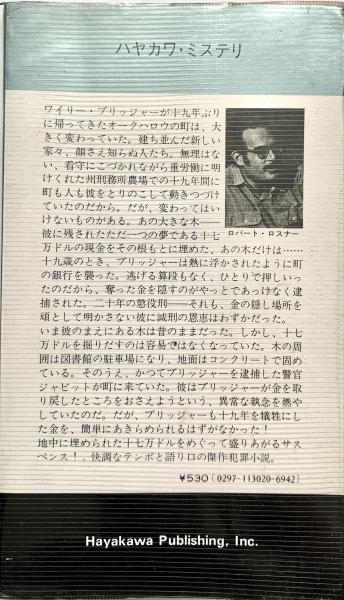 ハヤカワ・ミステリ
ワイリー・ブリッジャーが十九年ぶり
に帰ってきたオークハロウの町は、大
きく変わっていた。建ち並んだ新しい
家々、顔さえ知らぬ人たち。無理はな
い、看守にこづかれながら重労働に明
けくれた州刑務所農場での十九年間に
町も人も彼をとりのこして動きつづけ
ていたのだから。だが、変わってはい
けないものがある。あの大きな木——
彼に残されたただ一つの夢である十七
万ドルの現金をその根もとに埋めた、あの木だけは……
ロバート・ロスナー
十九歳のとき、ブリッジャーは熱に浮かされたように町
の銀行を襲った。逃げる算段もなく、ひとりで押しいっ
たのだから、奪った金を隠すのがやっとであっけなく逮
捕された。二十年の懲役刑——それも、金の隠し場所を
頑として明かさない彼に減刑の恩恵はわずかだった。
いま彼のまえにある木は昔のままだった。しかし、十七
万ドルを掘りだすのは容易ではなくなっていた。木の周
囲は図書館の駐車場になり、地面はコンクリートで固め
ている。そのうえ、かつてブリッジャーを逮捕した警官
ジャビットが町に来ていた。彼はブリッジャーが金を取
り戻したところをおさえようという、異常な執念を燃や
していたのだ。だが、ブリッジャーも十九年を犠牲にし
た金を、簡単にあきらめられるはずがなかった！
地中に埋められた十七万ドルをめぐって盛りあがるサス
ペンス！ 快調なテンポと語り口の傑作犯罪小説。
¥530(0297-113020-6942)
Hayakawa Publishing, Inc.